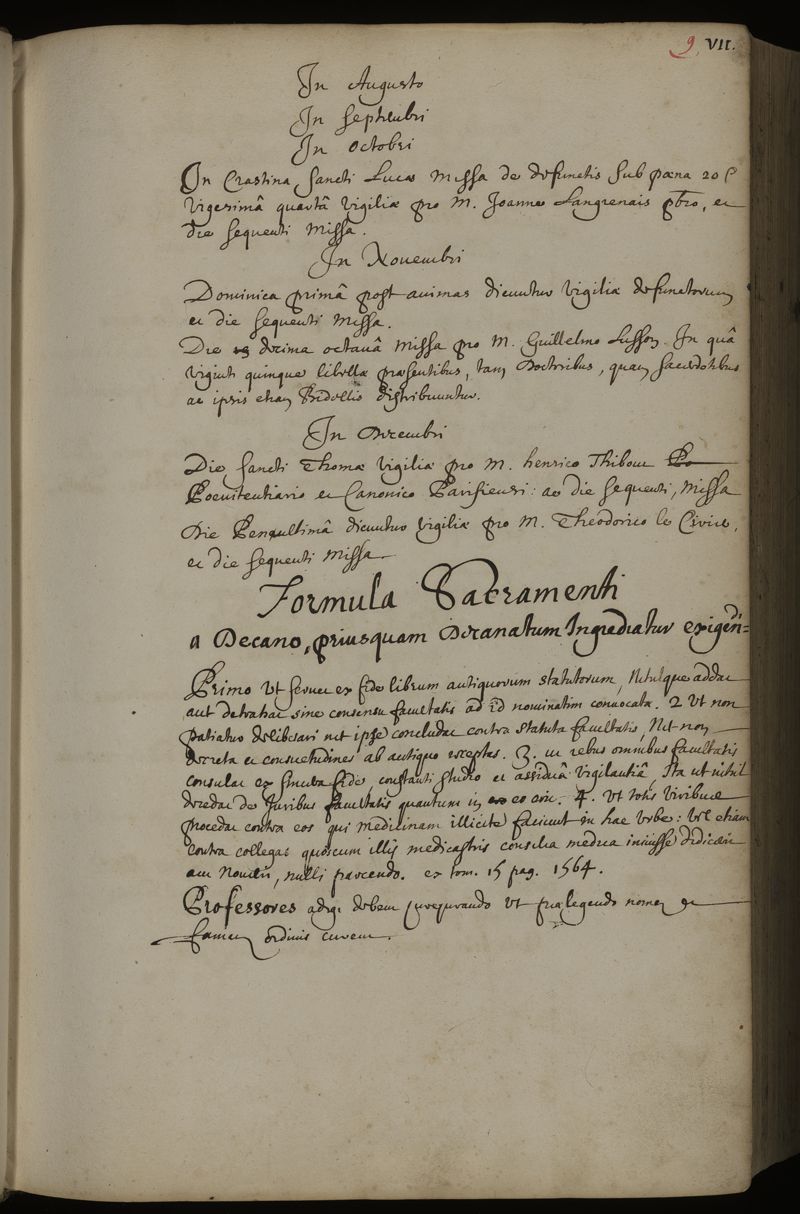 9 VII.
In Augusto
In Septembri
In Octobri
In Crastina Sancti Lucae Missa de defunctis sub poena 20 S
Vigesimâ quartâ Vigiliae pro M. Joanne Langrenais pbro, et
die sequenti Missa.
In Novembri
Dominica primâ post animas dicuntur Vigiliae defunctorum
et die sequenti Missa.
Die decima octavâ Missa pro M. Guillelmo Lusson. In quâ
viginti quinque libellae praesentibus, tam Doctoribus, quam sacerdotibus
ac ipsis etiam Bidellis distribuuntur.
In Decembri
Die Sancti Thomae Vigiliae pro M. henrico Thiboue Po
Poenitentiario et Canonico Parisiensi: ac die sequenti, Missa
Die Penultimâ dicuntur Vigiliae pro M. Theodorico le Cirier,
et die sequenti Missa.
Formula Sacramenti
a Decano, priusquam Decanatum Ingrediatur exigendi=
Primo Ut servet ex fide librum antiquorum statutorum, Nihilque addat
aut detrahat sine consensu facultatis ad id nominatim convocata. 2 Ut non
patiatur deliberari nec ipse concludat contra statuta facultatis, Nec non
decreta et consuetudines ab antiquo receptas. 3. in rebus omnibus facultatis
consulat ex sincera fide, constanti studio et assiduâ vigilantiâ, Ita ut nihil
decedat de Iuribus facultatis quantum in eo erit. 4. Ut totis viribus
procedat contra eos qui medicinam illicite faciunt in hac Urbe: Vel etiam
contra collegas quos cum illis medicastris consilia medica iniisse didicerit
aut Noverit, nulli parcendo. ex tom. 15 pag. 1564.
Professores adigi debent jurejurando ut praelegendo nomen et
famam ordinis curent.